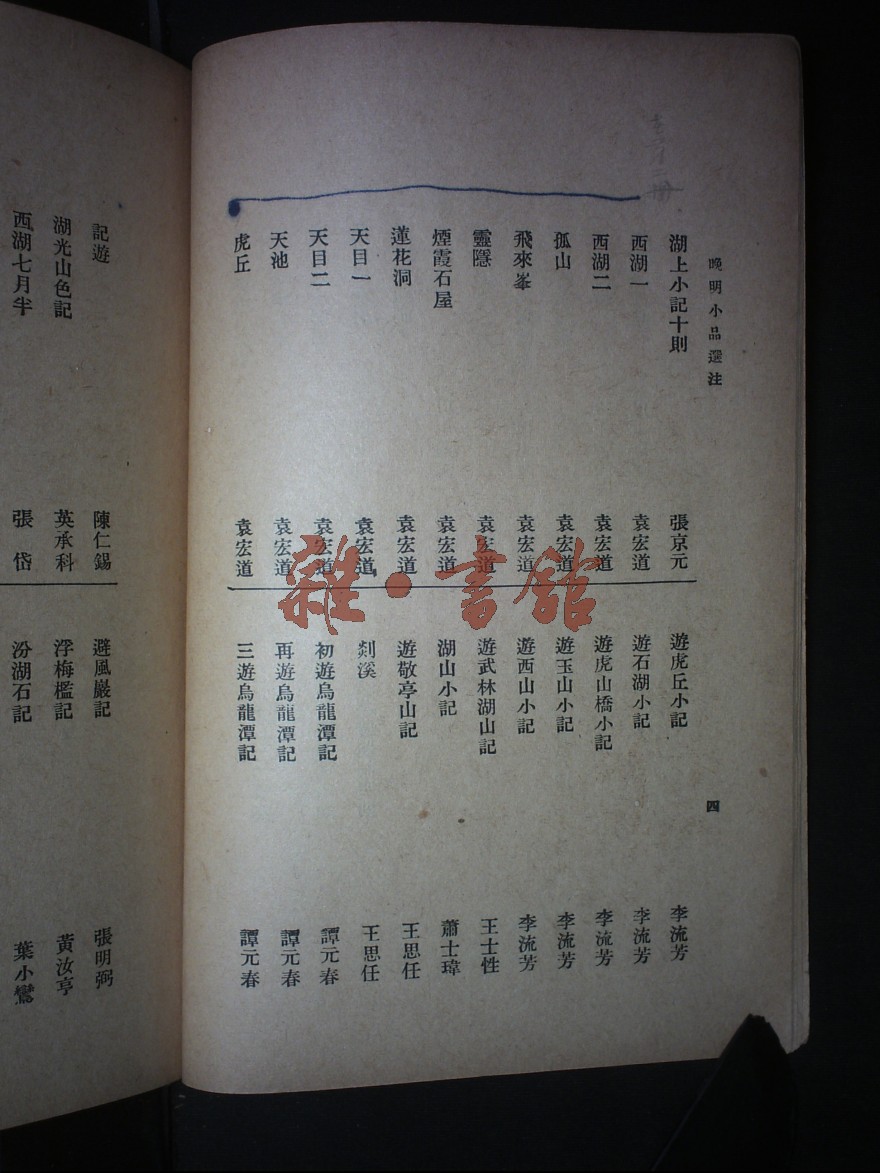 晚明小品選注
四
湖上小記十則 張京元
西湖一 袁宏道
西湖二 袁宏道
孤山 袁宏道
飛來峯 袁宏道
靈隱 袁宏道
煙霞石屋 袁宏道
蓮花洞 袁宏道
天目一 袁宏道
天目二 袁宏道
天池 袁宏道
虎丘 袁宏道
遊虎丘小記 李流芳
遊石湖小記 李流芳
遊虎山橋小記 李流芳
遊玉山小記 李流芳
遊西山小記 李流芳
遊武林湖山記 王士性
湖山小記 蕭士瑋
遊敬亭山記 王思任
剡溪 王思任
初遊烏龍潭記 譚元春
再遊烏龍潭記 譚元春
三遊烏龍潭記 譚元春
記遊 陳仁錫
湖光山色記 英承科
西湖七月半 張岱
避風巖記 張明弼
浮梅檻記 黃汝亨
汾湖石記 葉小鸞
雜·書館